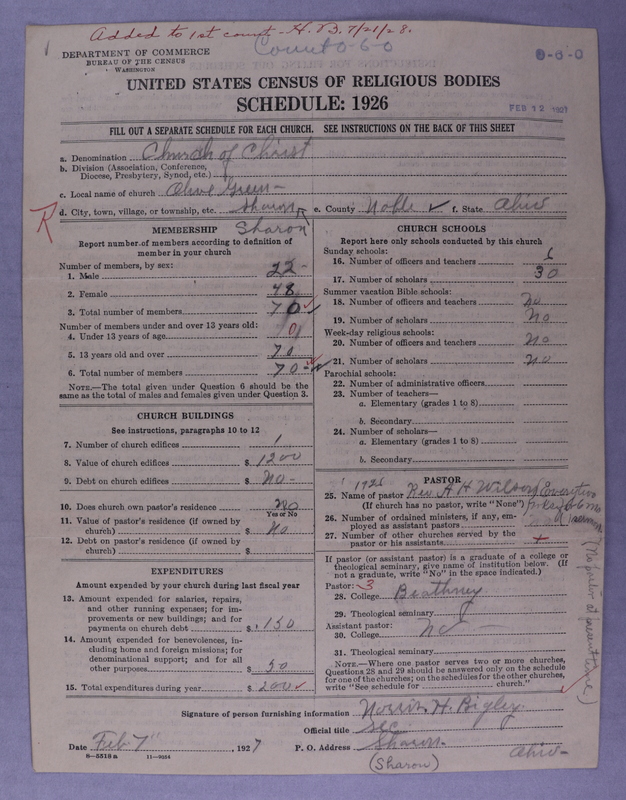 Added to 1st count - H. B. 7/21/28.
Count 0-60
0-0-0
DEPARTMENT OF COMMERCE
BUREAU OF THE CENSUS
WASHINGTON
UNITED STATES CENSUS OF RELIGIOUS BODIES
SCHEDULE: 1926
FEB 12 1927
FILL OUT A SEPARATE SCHEDULE FOR EACH CHURCH. SEE INSTRUCTIONS ON THE BACK OF THIS SHEET
a. Denomination Church of Christ
b. Division (Association, Conference, Diocese, Presbytery, Synod, etc.)
c. Local name of church Olive Green
d. City, town, village, or township, etc. Sharon e. County Noble ✓ f. State Ohio
R
Sharon
MEMBERSHIP
Report number of members according to definition of member in your church
Number of members, by sex:
1. Male 22
2. Female 48
3. Total number of members 70
Number of members under and over 13 years old:
4. Under 13 years of age 0
5. 13 years old and over 70
6. Total number of members 70
NOTE.—The total given under Question 6 should be the same as the total of males and females given under Question 3.
CHURCH BUILDINGS
See instructions, paragraphs 10 to 12
7. Number of church edifices 1
8. Value of church edifices $ 1200
9. Debt on church edifices $ No
10. Does church own pastor's residence No
Yes or No
11. Value of pastor's residence (if owned by church) $ No
12. Debt on pastor's residence (if owned by church) $
EXPENDITURES
Amount expended by your church during last fiscal year
13. Amount expended for salaries, repairs, and other running expenses; for improvements or new buildings; and for payments on church debt $ 150
14. Amount expended for benevolences, including home and foreign missions; for denominational support; and for all other purposes $ 50
15. Total expenditures during year $ 200 ✓
CHURCH SCHOOLS
Report here only schools conducted by this church
Sunday schools:
16. Number of officers and teachers 6
17. Number of scholars 30
Summer vacation Bible schools:
18. Number of officers and teachers No
19. Number of scholars No
Week-day religious schools:
20. Number of officers and teachers No
21. Number of scholars No
Parochial schools:
22. Number of administrative officers
23. Number of teachers—
a. Elementary (grades 1 to 8)
b. Secondary
24. Number of scholars—
a. Elementary (grades 1 to 8)
b. Secondary
PASTOR
25. Name of pastor Rev. A H Wilson
(If church has no pastor, write "None")
26. Number of ordained ministers, if any, employed as assistant pastors
27. Number of other churches served by the pastor or his assistants
(No pastor at present time)
If pastor (or assistant pastor) is a graduate of a college or theological seminary, give name of institution below. (If not a graduate, write "No" in the space indicated.)
Pastor: 3
28. College
29. Theological seminary
Assistant pastor:
30. College No
31. Theological seminary
NOTE.—Where one pastor serves two or more churches, Questions 28 and 29 should be answered only on the schedule for one of the churches; on the schedules for the other churches, write "See schedule for church."
Signature of person furnishing information Norris H. Bigley
Official title Sec
Date Feb 7", 1927 P. O. Address Sharon Ohio
(Sharon)
8—5318a 11—9054